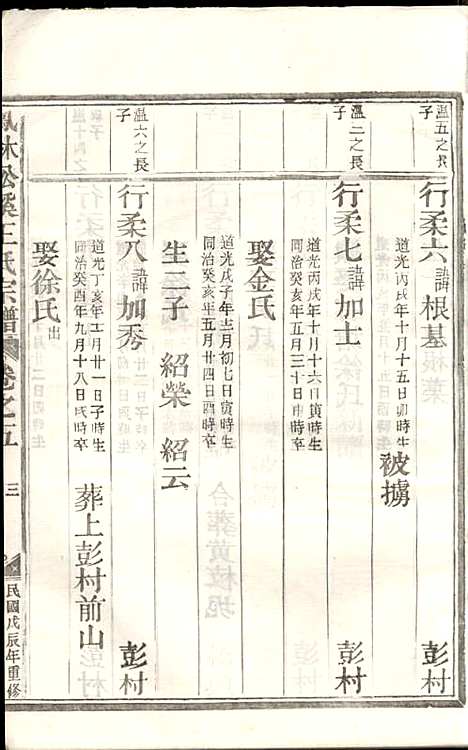 溫五之長子
行柔六諱根基
彭村
道光丙戌年十月十五日卯時生
被擄
溫二之長子
行柔七諱加士
彭村
道光丙戌年十月十六日寅時生
同治癸亥年五月三十日申時卒
娶金氏
道光戊子年十二月初七日寅時生
同治癸亥年五月廿四日酉時卒
生二子 紹榮 紹云
溫六之長子
行柔八諱加秀
彭村
道光丁亥年五月廿一日子時生
同治癸酉年九月十八日戌時卒
葬上彭村前山
娶徐氏出
林松溪王氏宗譜
卷之五
三
民國戊辰年重修